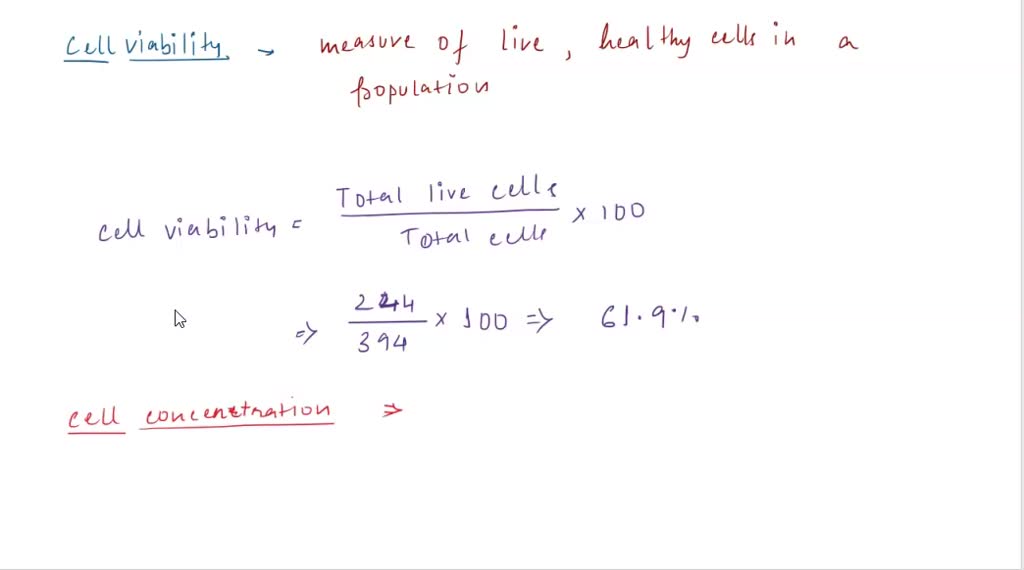 Cell viability → measure of live, healthy cells in a
population
cell viability = Total live cells / Total cells × 100
⇒ 244 / 394 × 100 ⇒ 61.9%
cell concentration ⇒